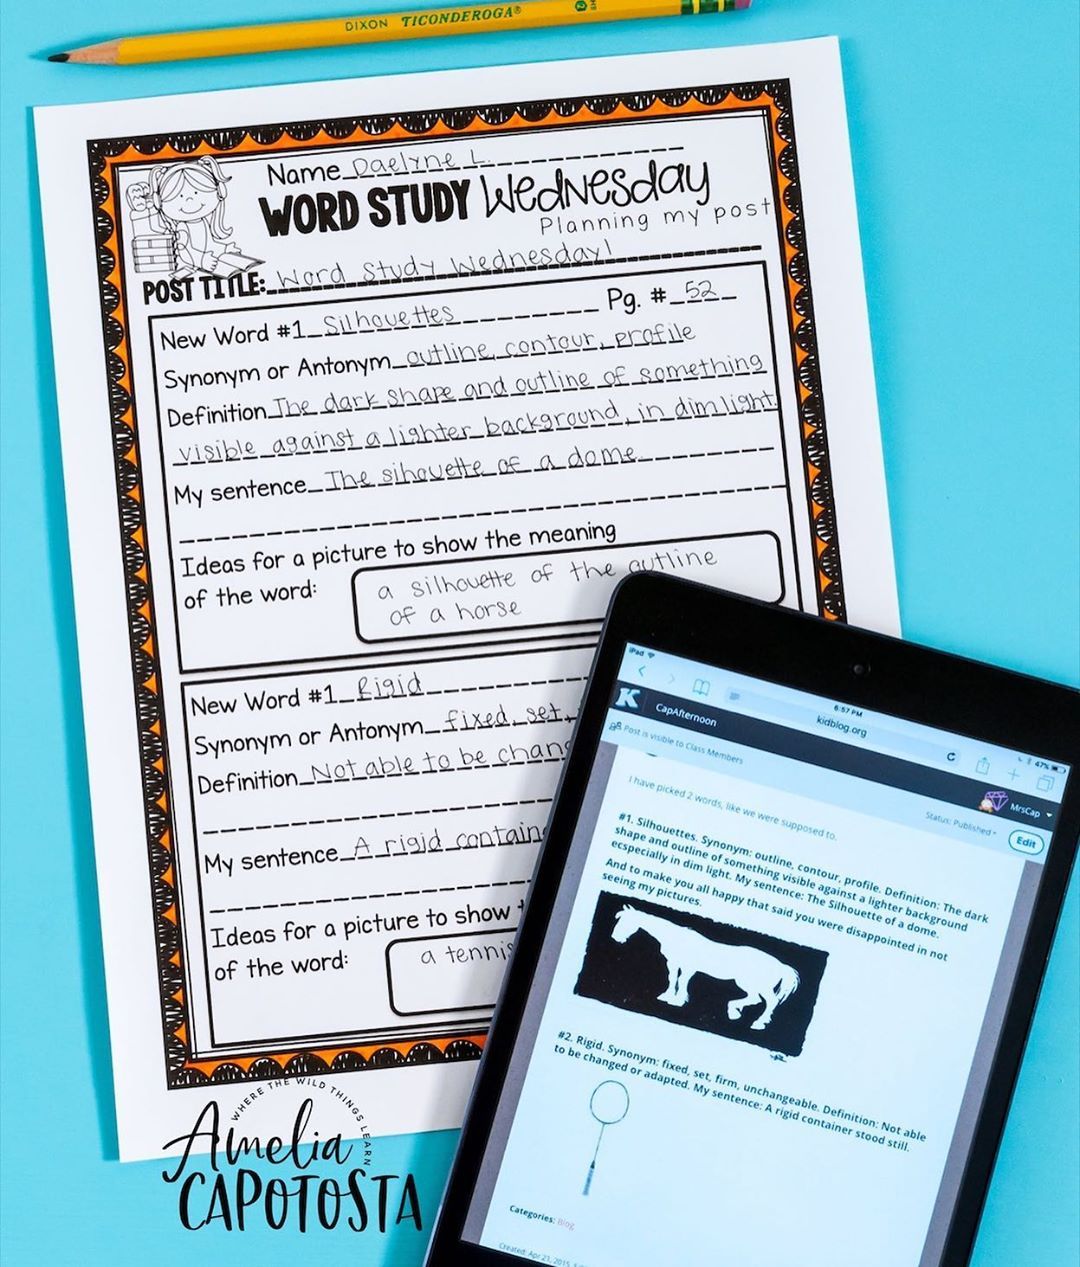 DIXON TICONDEROGA®
Name Daelyne L.
WORD STUDY Wednesday
Planning my post
POST TITLE: Word Study Wednesday!
New Word #1 Silhouettes Pg. # 52
Synonym or Antonym outline, contour, profile
Definition The dark shape and outline of something
visible against a lighter background, in dim light.
My sentence The sihouette of a dome.
Ideas for a picture to show the meaning
of the word:
a silhouette of the outline
of a horse
New Word #1 Rigid
Synonym or Antonym fixed, set,
Definition Not able to be chan
My sentence A rigid contain
Ideas for a picture to show
of the word:
a tennis
WHERE THE WILD THINGS LEARN
Amelia
CAPOTOSTA
iPad
6:57 PM
47%
kidblog.org
K CapAfternoon
MrsCap
Post is visible to Class Members
Status: Published
Edit
I have picked 2 words, like we were supposed to.
#1. Silhouettes. Synonym: outline, contour, profile. Definition: The dark
shape and outline of something visible against a lighter background
ecspecially in dim light. My sentence: The Silhouette of a dome.
And to make you all happy that said you were disappointed in not
seeing my pictures.
#2. Rigid. Synonym: fixed, set, firm, unchangeable. Definition: Not able
to be changed or adapted. My sentence: A rigid container stood still.
Categories: Blog
Created: Apr 23, 2015,